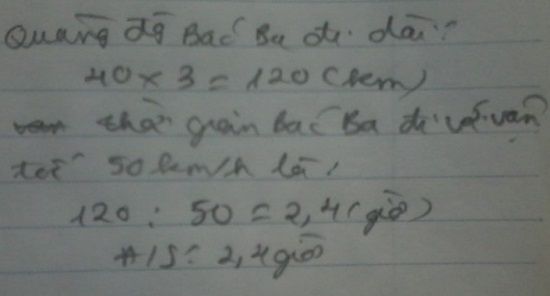 Quãng đg Bác Ba đi dài:
40 × 3 = 120 (km)
thời gian Bác Ba đi với vận
tốc 50 km/h là:
120 : 50 = 2,4 (giờ)
Đ/S: 2,4 giờ